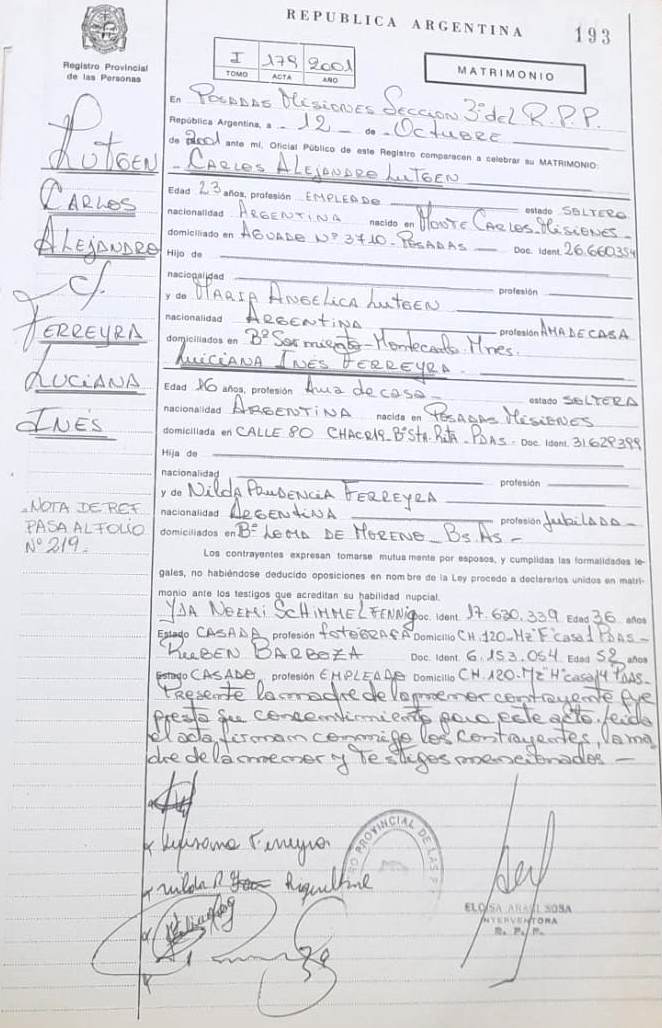 REPUBLICA ARGENTINA
193
Registro Provincial
de las Personas
I 179 2001
TOMO ACTA AÑO
MATRIMONIO
LUTGEN
CARLOS
ALEJANDRO
c/.
FERREYRA
LUCIANA
INÉS
NOTA DE REF
PASA AL FOLIO
Nº 219.
En POSADAS MISIONES SECCION 3ª del R.P.P.
República Argentina, a 12 de OCTUBRE
de 2001 ante mí, Oficial Público de este Registro comparecen a celebrar su MATRIMONIO:
CARLOS ALEJANDRO LUTGEN
Edad 23 años, profesión EMPLEADO estado SOLTERO
nacionalidad ARGENTINA nacido en MONTE CARLOS-MISIONES
domiciliado en AGUADO Nº 3710-POSADAS Doc. Ident. 26.660354
Hijo de
nacionalidad profesión
y de MARIA ANGELICA LUTGEN
nacionalidad ARGENTINA profesión AMA DE CASA
domiciliados en Bº Sarmiento-Montecarlo Mnes.
LUICIANA INES FERREYRA
Edad 16 años, profesión Ama de casa estado SOLTERA
nacionalidad ARGENTINA nacida en POSADAS MISIONES
domiciliada en CALLE 80 CHACR19-Bº Sta. Rita-PDAS- Doc. Ident. 31629399
Hija de
nacionalidad profesión
y de Nilda PRUDENCIA FERREYRA
nacionalidad ARGENTINA profesión Jubilada
domiciliados en Bº LOMA DE MORENO-Bs.As-
Los contrayentes expresan tomarse mutuamente por esposos, y cumplidas las formalidades le-
gales, no habiéndose deducido oposiciones en nombre de la Ley procedo a declararlos unidos en matri-
monio ante los testigos que acreditan su habilidad nupcial.
YDA NOEMI SCHIMMELFENNIG Doc. Ident. 17.630.339 Edad 36 años
Estado CASADA profesión fotografa Domicilio CH.120-Mz"F"casa 1 PDAS-
RUBEN BARBOZA Doc. Ident. 6.153.054 Edad 52 años
Estado CASADO profesión EMPLEADO Domicilio CH.120-Mz"H"casa14 PDAS-
Presente la madre de la menor contrayente
presta su consentimiento para este acto. leida
el acta, firman conmigo los contrayentes, la ma
dre de la menor y testigos mencionados
PROVINCIAL DE LAS P
ELOISA SOSA
INTERVENTORA
R. P. P.